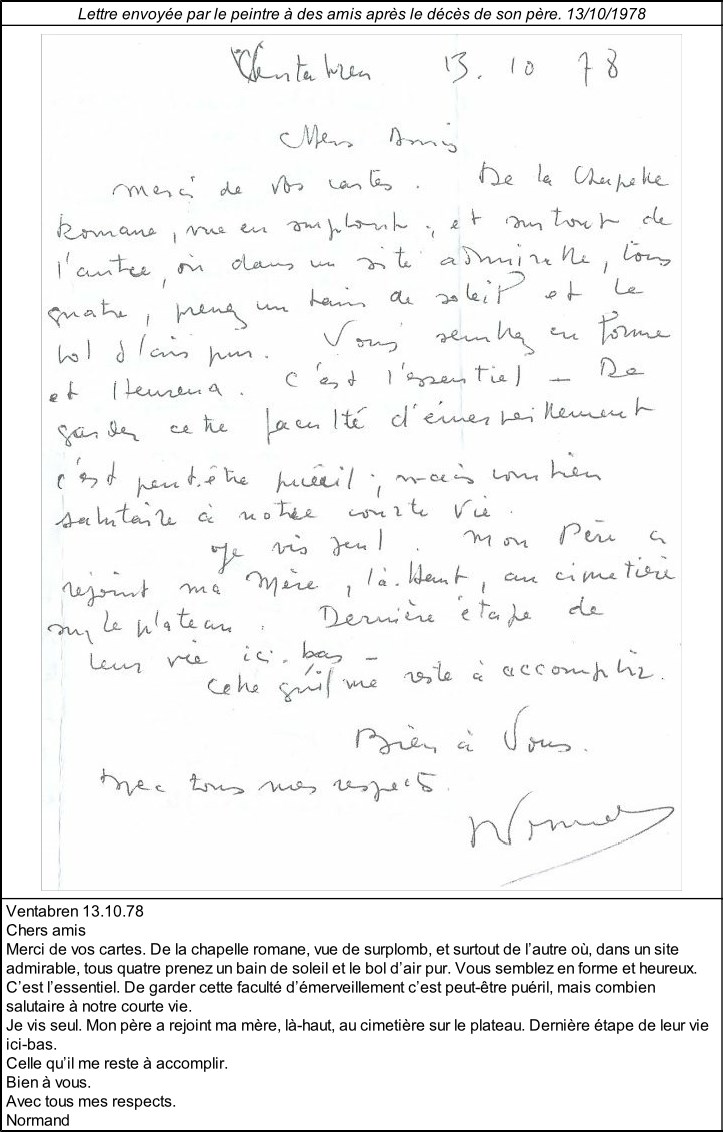 Lettre envoyée par le peintre à des amis après le décès de son père. 13/10/1978
Ventabren 13. 10 78
Mers Amis
Merci de vos cartes. De la Chapelle
Romane, vue en surplomb, et surtout de
l'autre, où dans un site admirable, tous
quatre, prenez un bain de soleil et le
bol d'air pur. Vous semblez en forme
et Heureux. C'est l'essentiel _ De
garder cette faculté d'émerveillement
c'est peut-être puéril, mais combien
salutaire à notre courte vie.
Je vis seul. Mon Père a
rejoint ma Mère, là-Haut, au cimetière
sur le plateau. Dernière étape de
leur vie ici-bas _
Celle qu'il me reste à accomplir.
Bien à Vous.
Avec tous mes respects.
Normand
Ventabren 13.10.78
Chers amis
Merci de vos cartes. De la chapelle romane, vue de surplomb, et surtout de l'autre où, dans un site
admirable, tous quatre prenez un bain de soleil et le bol d'air pur. Vous semblez en forme et heureux.
C'est l'essentiel. De garder cette faculté d'émerveillement c'est peut-être puéril, mais combien
salutaire à notre courte vie.
Je vis seul. Mon père a rejoint ma mère, là-haut, au cimetière sur le plateau. Dernière étape de leur vie
ici-bas.
Celle qu'il me reste à accomplir.
Bien à vous.
Avec tous mes respects.
Normand